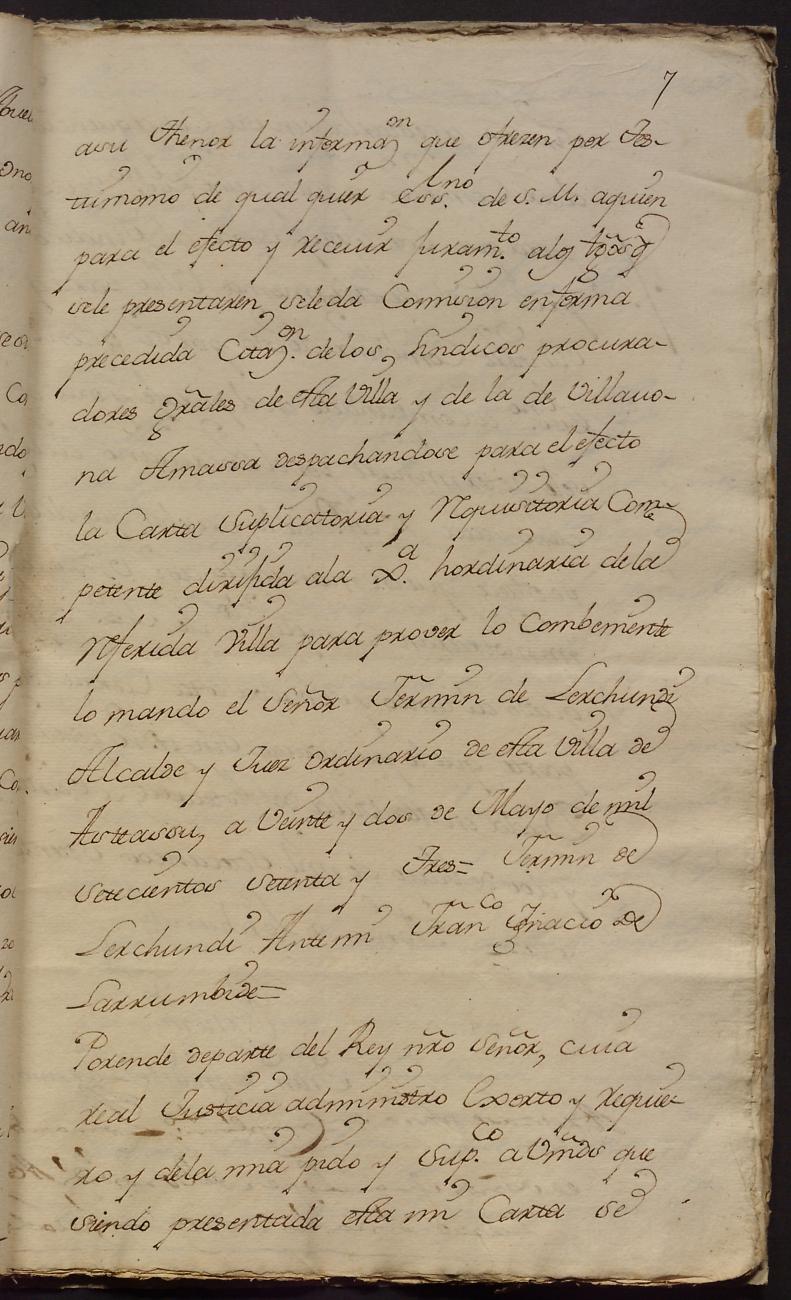 7
asu thenor la informaⁿ que ofrezen por Tes-
timonio de qual quier Essⁿᵒ. de S. M. aquien
para el efecto y receuir juramᵗᵒ. alos tgos q̃
sele presentaren seleda Comision enforma
precedida Citaⁿ. delos Sindicos procura-
dores Grãles de esta Villa y de la de Villauo-
na Amassa despachandose para el efecto
la Carta suplicatoria y Requisitoria Com-
petente dirijida ala Jᵃ. hordinaria dela
Referida Villa para prover lo combeniente
lo mando el Señor Fermin de Lerchundi
Alcalde y Juez Ordinario de esta Villa de
Asteassu, a Veinte y dos de Mayo de mil
setecientos setenta y Tres= Fermin de
Lerchundi Antemi Franᶜᵒ Ignacio de
Larrumbide=
Porende departe del Rey nr̃o Señor, cuia
real Justicia administro Exorto y requie-
ro y dela mia pido y supᶜᵒ. a Vm̃ds que
siendo presentada esta mi Carta se